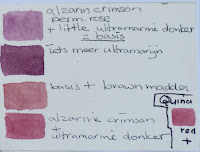 alzarin crimson
perm. rose
+ little ultramarine donker
= basis
iets meer ultramarijn
basis + brown madder
Quina
red +
alzarin e crimson
+
ultramarine donker